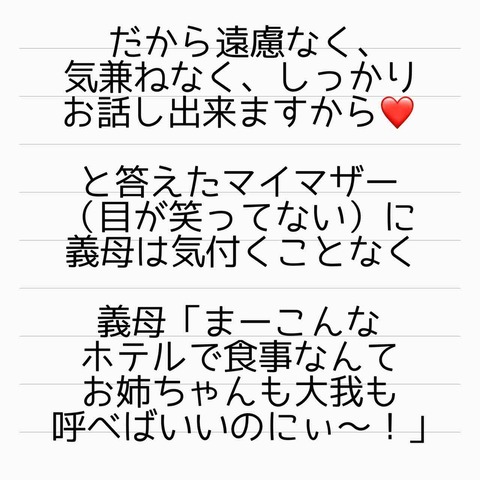 だから遠慮なく、
気兼ねなく、しっかり
お話し出来ますから❤️
と答えたマイマザー
（目が笑ってない）に
義母は気付くことなく
義母「まーこんな
ホテルで食事なんて
お姉ちゃんも大我も
呼べばいいのにぃ〜！」